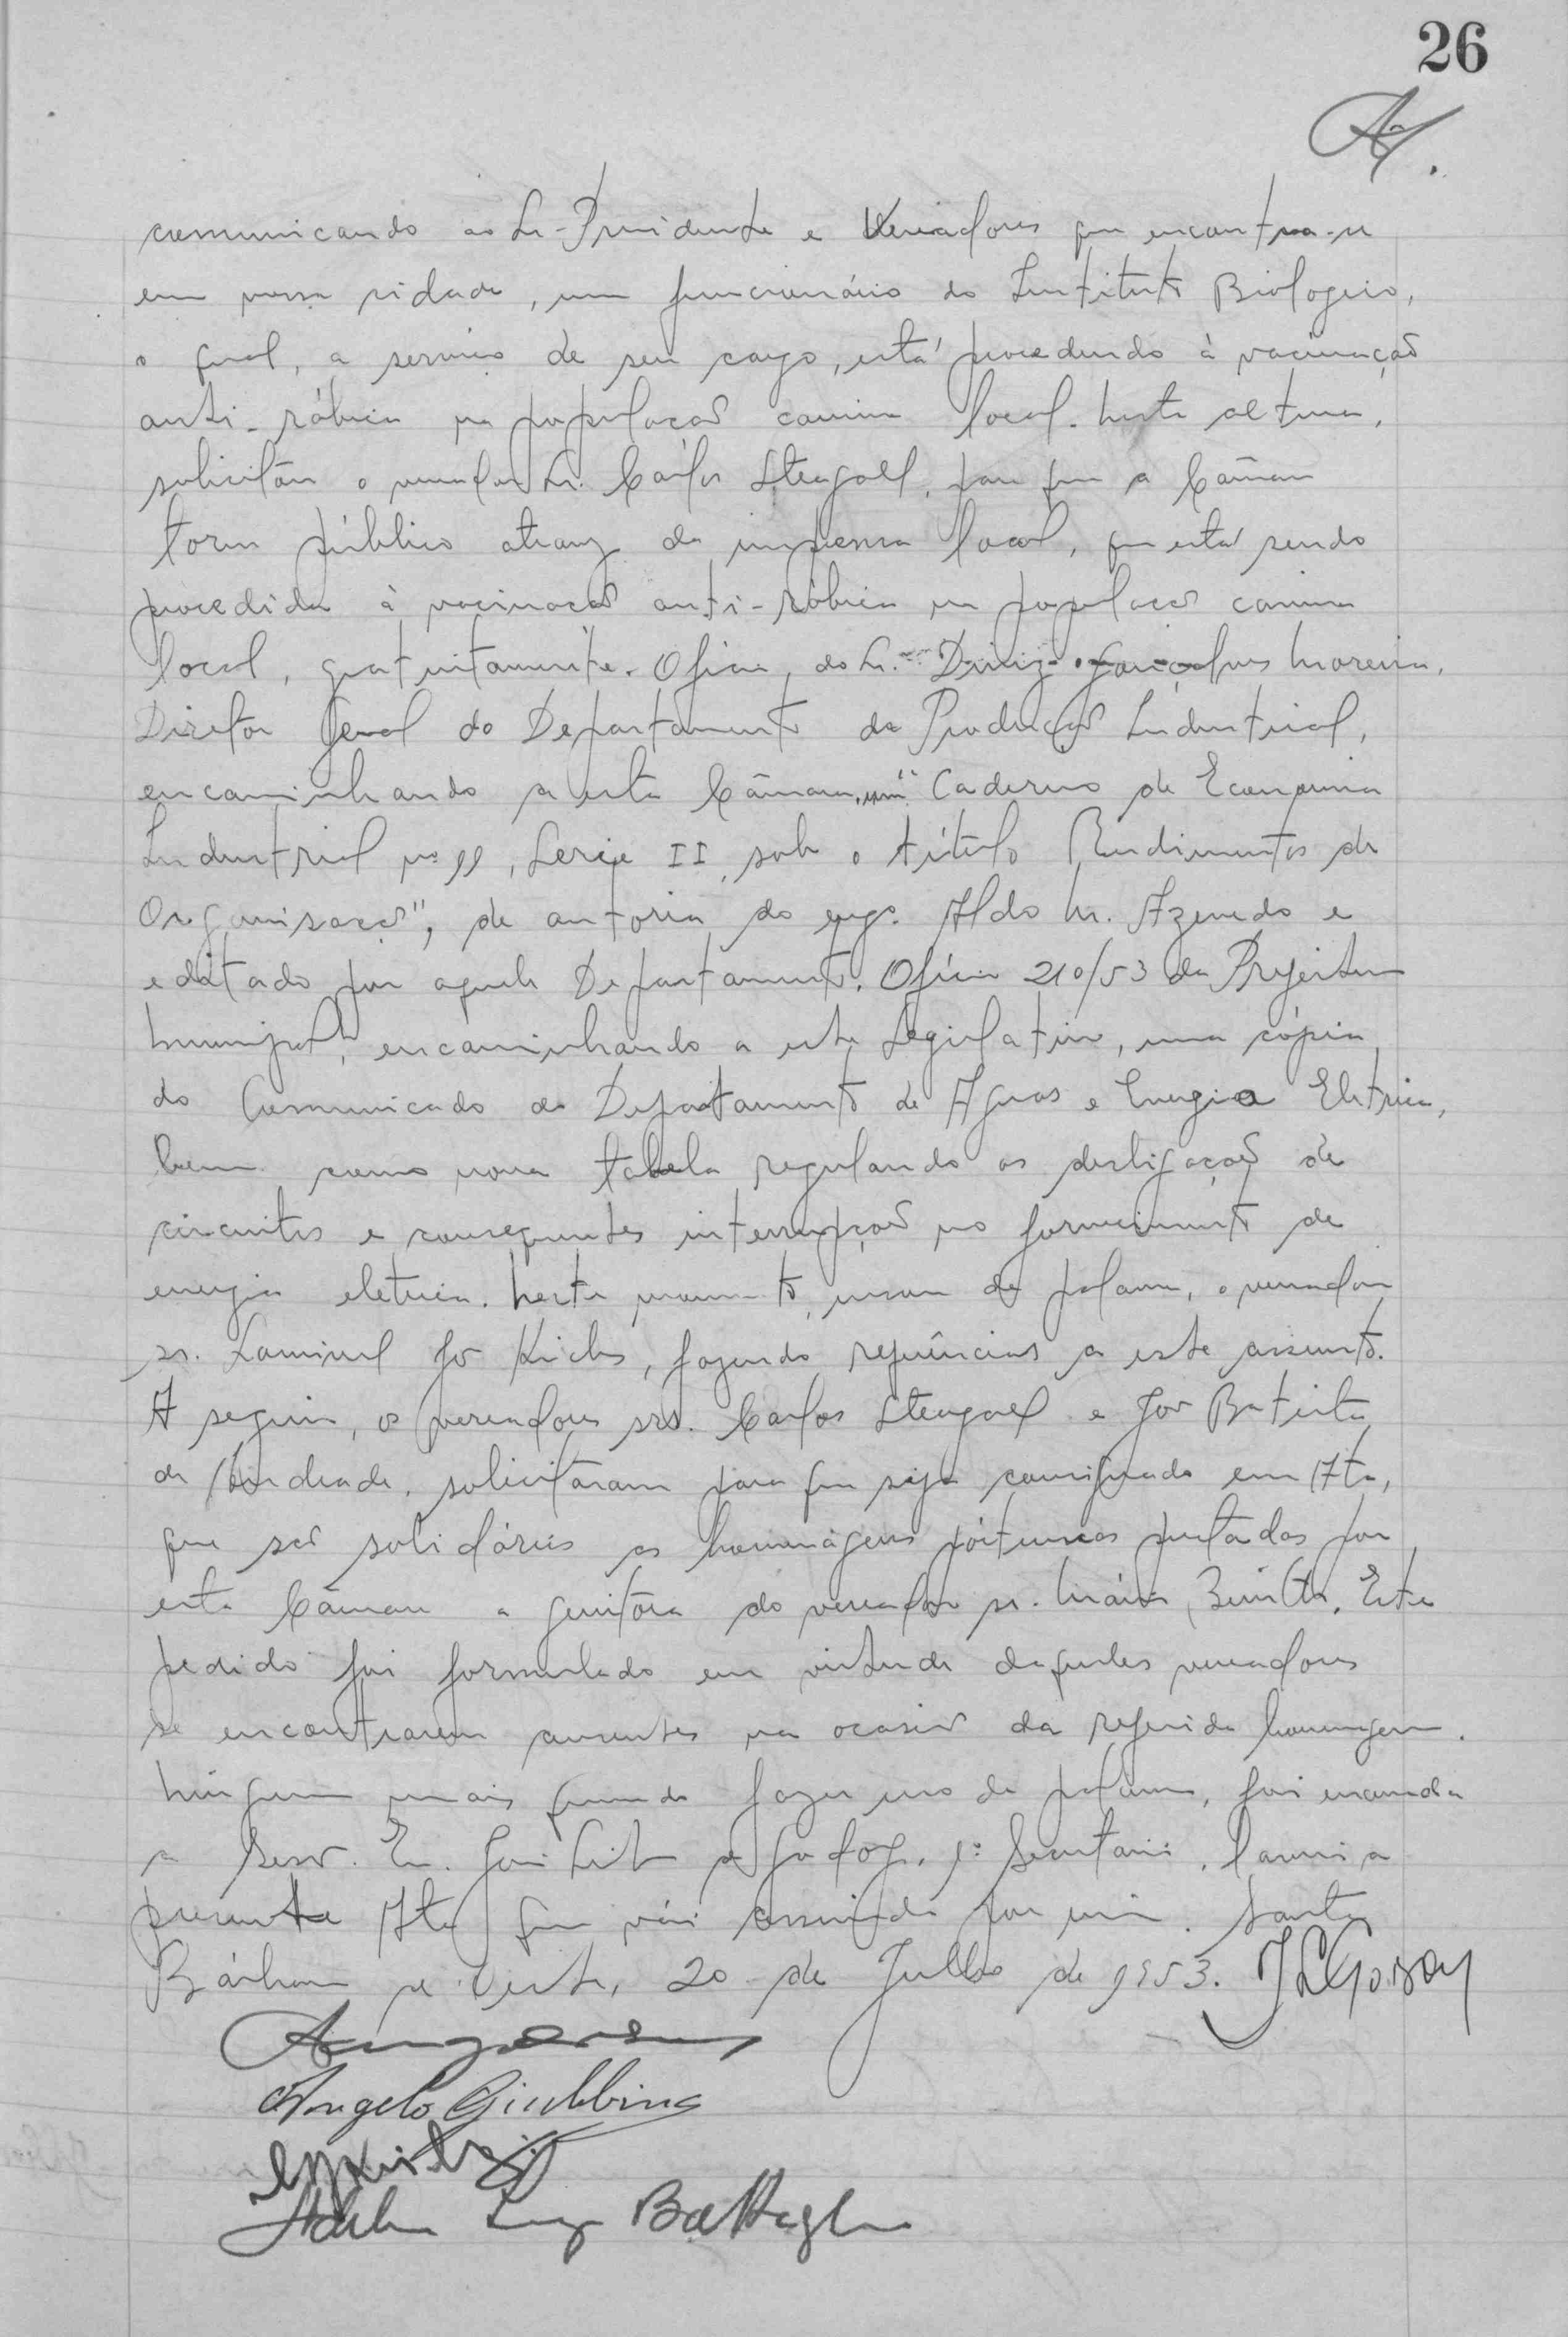 26
comunicando ao Sr. Presidente e Vereadores que encontra-se
em nossa cidade, um funcionário do Instituto Biologico,
o qual, a serviço de seu cargo, está procedendo à vacinação
anti-rábica na população canina local. Nesta altura,
solicitou o vereador Sr. Carlos Steagall, para que a Câmara
torne público atravez da imprensa local, que está sendo
procedida à vacinação anti-rábica na população canina
local, gratuitamente. Oficio, do Sr. Diniz Gonçalves Moreira,
Diretor Geral do Departamento da Produção Industrial,
encaminhando a esta Câmara, um "Caderno de Economia
Industrial nº 11, Serie II, sob o título Rudimentos de
Organisação", de autoria do engo. Aldo M. Azevedo e
editado por aquele Departamento. Ofício 210/53 da Prefeitura
Municipal, encaminhando a este Legislativo, uma cópia
do Comunicado do Departamento de Aguas e Energia Eletrica,
bem como nova tabela regulando as desligação de
circuitos e consequentes interrupção no fornecimento de
energia eletrica. Nesta momento, usou da palavra, o vereador
sr. José Kichs, fazendo referências a este assunto.
A seguir, os vereadores srs. Carlos Steagall e José Batista
de Andrade, solicitaram para que seja consignado em Ata,
que são solidários as homenágens póstumas prestadas por
esta Câmara a genitora do vereador sr. Mário. Este
pedido foi formulado em virtude daqueles vereadores
se encontrarem ausentes na ocasião da referida homenagem.
Ninguem mais querendo fazer uso da palavra, foi encerrada
a Sessão. Eu. José Leite de Godoy, 1º Secretario, lavrei a
presente Ata que vái assinada por mim. Santa
Bárbara d'Oeste, 20 de Julho de 1953. JLGodoy
Angelo Giubbina
Battaglia